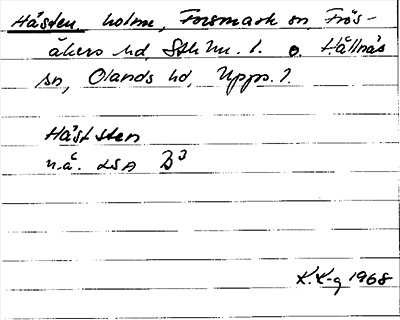 Hästen, holme, Forsmark sn, Frös-
åkers hd, Sthlm. l. o. Hållnäs
sn, Olands hd, Upps. l.
Häststen
n.ä. LSA B3
K.K-g 1968